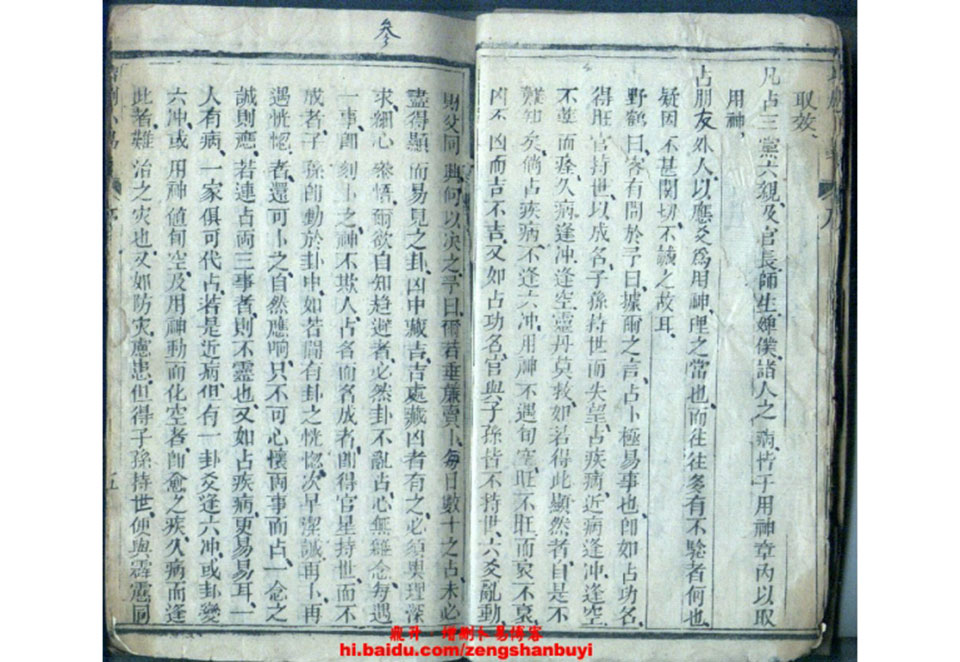 參
取效、
凡占三黨六親及官長師生婢僕諸人之病皆于用神章內以取
用神、
占朋友外人以應爻爲用神、理之當也、而往往多有不驗者何也、
疑因不甚関切、不誠之故耳、
野鶴曰、客有問於予曰、據爾之言、占卜極易事也、卽如占功名、
得旺官持世以成名、子孫持世而失望、占疾病近病逢冲逢空、
不藥而痊、久病逢冲逢空、靈丹莫救、如若得此顯然者、自是不
難知矣、倘占疾病不逢六冲、用神不遇旬空、旺不旺而衰不衰、
凶不凶而吉不吉、又如占功名、官與子孫皆不持世、六爻亂動、
財父同興、何以决之、予曰、爾若垂簾賣卜、每日數十之占、未必
盡得顯而易見之卦、凶中藏吉、吉處藏凶者有之、必須奥理深
求、細心叅悟、爾欲自知趋避者、必然卦不亂占、心無雜念、每遇
一事、卽刻卜之、神不欺人、占名而名成者、卽得官星持世、而不
成者、子孫卽動於卦中、如若間有卦之恍惚、次早潔誠再卜、再
遇恍惚者、還可卜之、自然應响、只不可心懷兩事而占、一念之
誠則應、若連占両三事者、則不靈也、又如占疾病、更易易耳、一
人有病、一家俱可代占、若是近病、但有一卦爻逢六冲、或卦變
六冲、或用神値旬空、及用神動而化空者、卽愈之疾、久病而逢
此者、難治之灾也、又如防灾應患、但得子孫持世、便與霹靂同
五
鼎升·增刪卜易博客
hi.baidu.com/zengshanbuyi